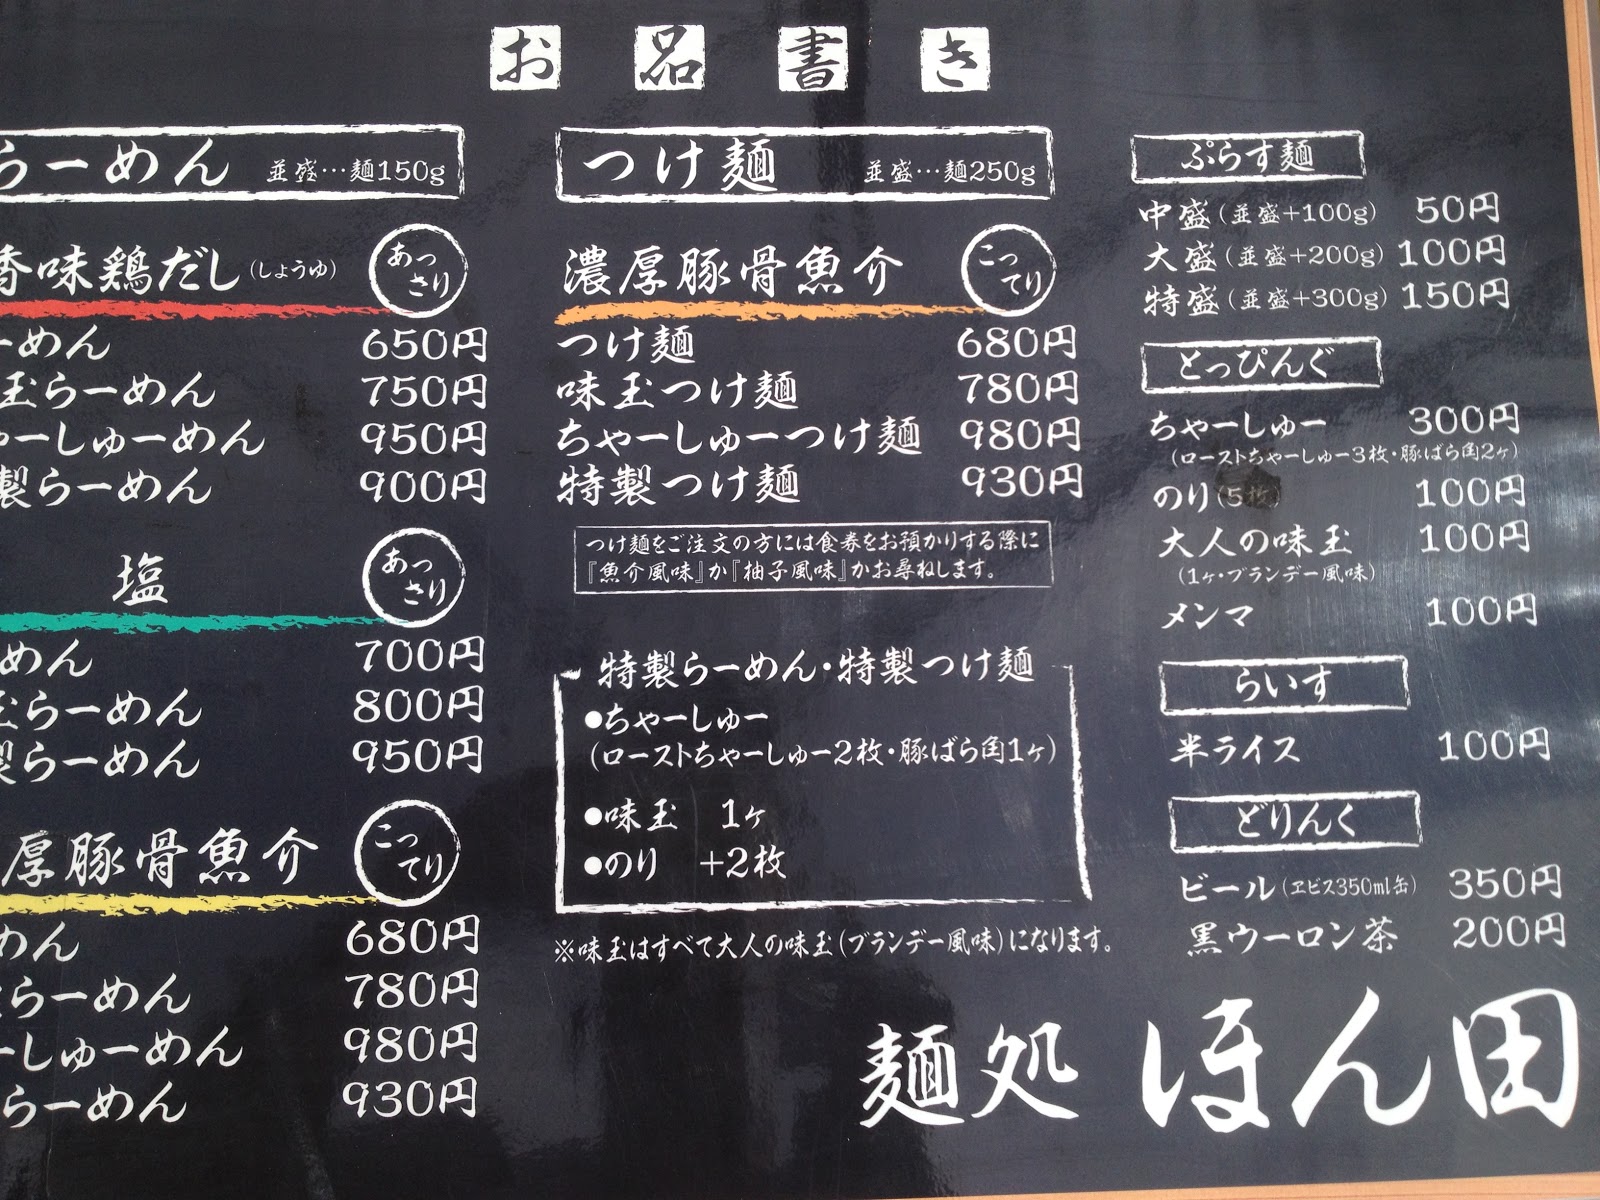 お品書き
らーめん 並盛…麺150g
香味鶏だし(しょうゆ) あっさり
ーめん 650円
玉らーめん 750円
ゃーしゅーめん 950円
製らーめん 900円
塩 あっさり
めん 700円
玉らーめん 800円
製らーめん 950円
厚豚骨魚介 こってり
めん 680円
らーめん 780円
ーしゅーめん 980円
らーめん 930円
つけ麺 並盛…麺250g
濃厚豚骨魚介 こってり
つけ麺 680円
味玉つけ麺 780円
ちゃーしゅーつけ麺 980円
特製つけ麺 930円
つけ麺をご注文の方には食券をお預かりする際に
『魚介風味』か『柚子風味』かお尋ねします。
特製らーめん・特製つけ麺
●ちゃーしゅー
(ローストちゃーしゅー2枚・豚ばら角1ヶ)
●味玉 1ヶ
●のり +2枚
※味玉はすべて大人の味玉(ブランデー風味)になります。
ぷらす麺
中盛(並盛+100g) 50円
大盛(並盛+200g) 100円
特盛(並盛+300g) 150円
とっぴんぐ
ちゃーしゅー 300円
(ローストちゃーしゅー3枚・豚ばら角2ヶ)
のり(5枚) 100円
大人の味玉 100円
(1ヶ・ブランデー風味)
メンマ 100円
らいす
半ライス 100円
どりんく
ビール(ヱビス350ml缶) 350円
黒ウーロン茶 200円
麺処 ほん田